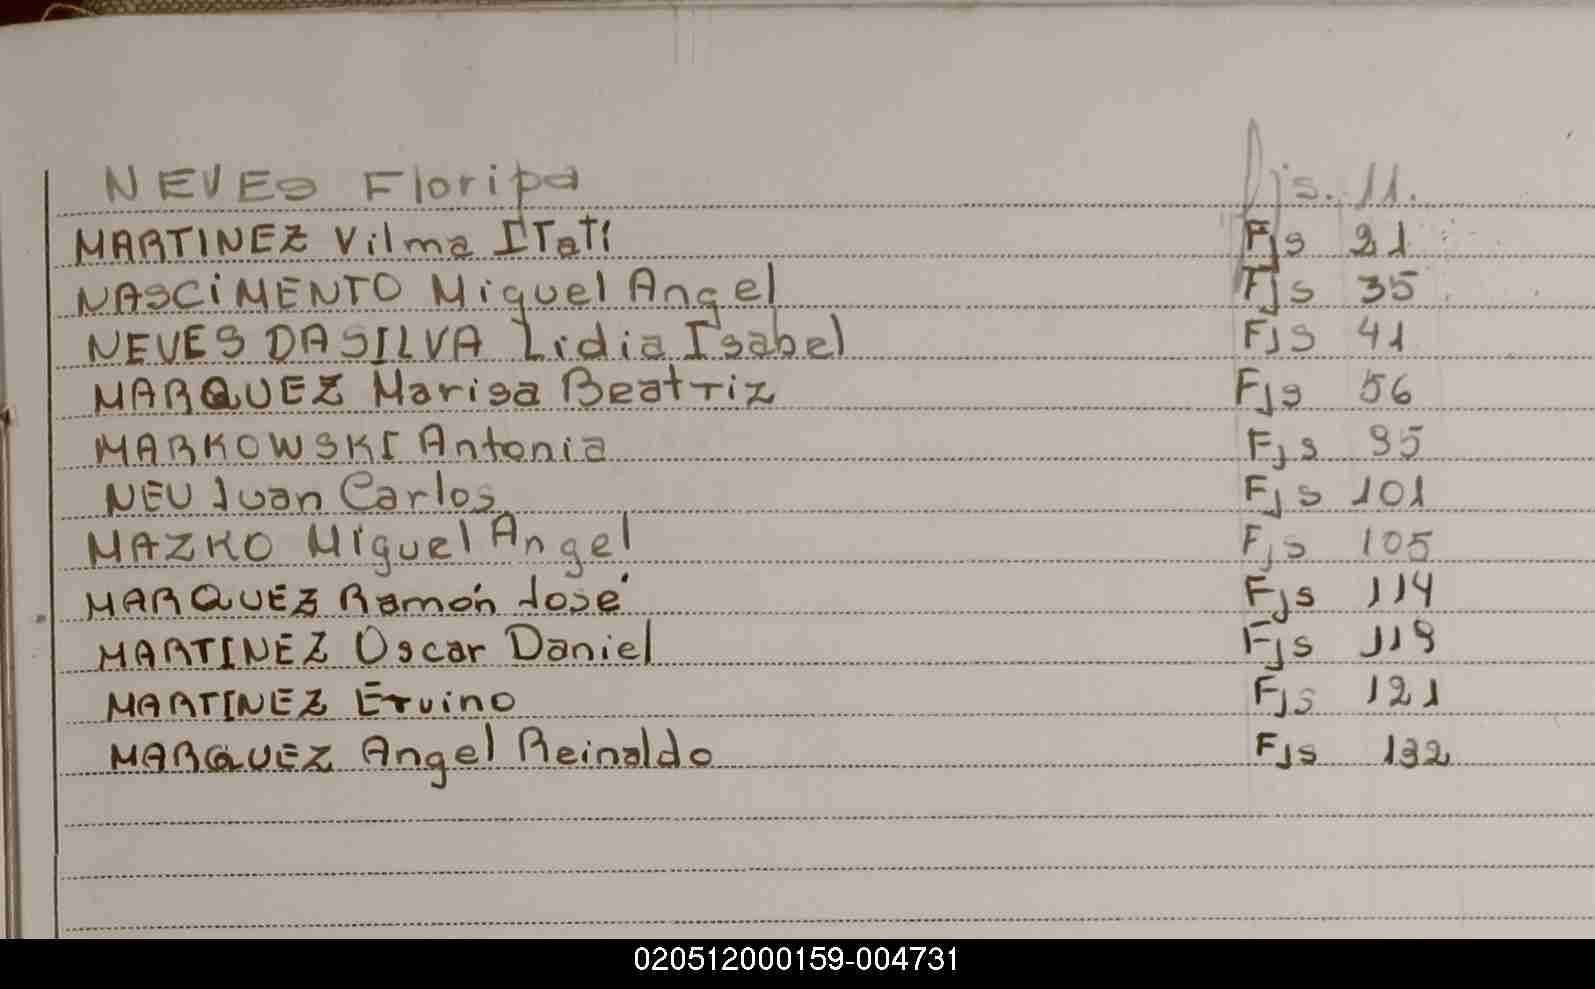 NEVES Floripa fjs. 11.
MARTINEZ Vilma ITatí Fjs 21
NASCIMENTO Miguel Angel Fjs 35
NEVES DA SILVA Lidia Isabel Fjs 41
MARQUEZ Marisa Beatriz Fjs 56
MARKOWSKI Antonia Fjs 95
NEU Juan Carlos Fjs 101
MAZKO Miguel Angel Fjs 105
MARQUEZ Ramón José Fjs 114
MARTINEZ Oscar Daniel Fjs 119
MARTINEZ Ervino Fjs 121
MARQUEZ Angel Reinaldo Fjs 132
020512000159-004731